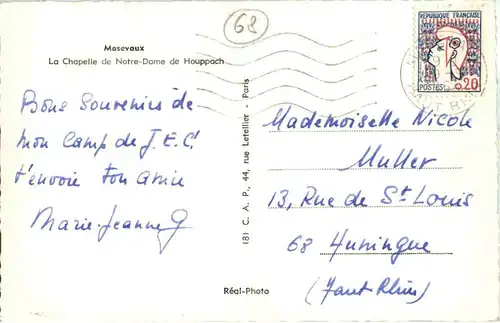 68
Masevaux
La Chapelle de Notre-Dame de Houppach
Bons Souvenirs de
mon Camp de J.E.C.
t'envoie ton amie
Marie-Jeanne G
(8) C. A. P., 44, rue Letellier - Paris
Réal-Photo
REPUBLIQUE FRANÇAISE
POSTES 0,20
HAUT RHIN
Mademoiselle Nicole
Muller
13, Rue de St Louis
68 Huningue
(Haut Rhin)